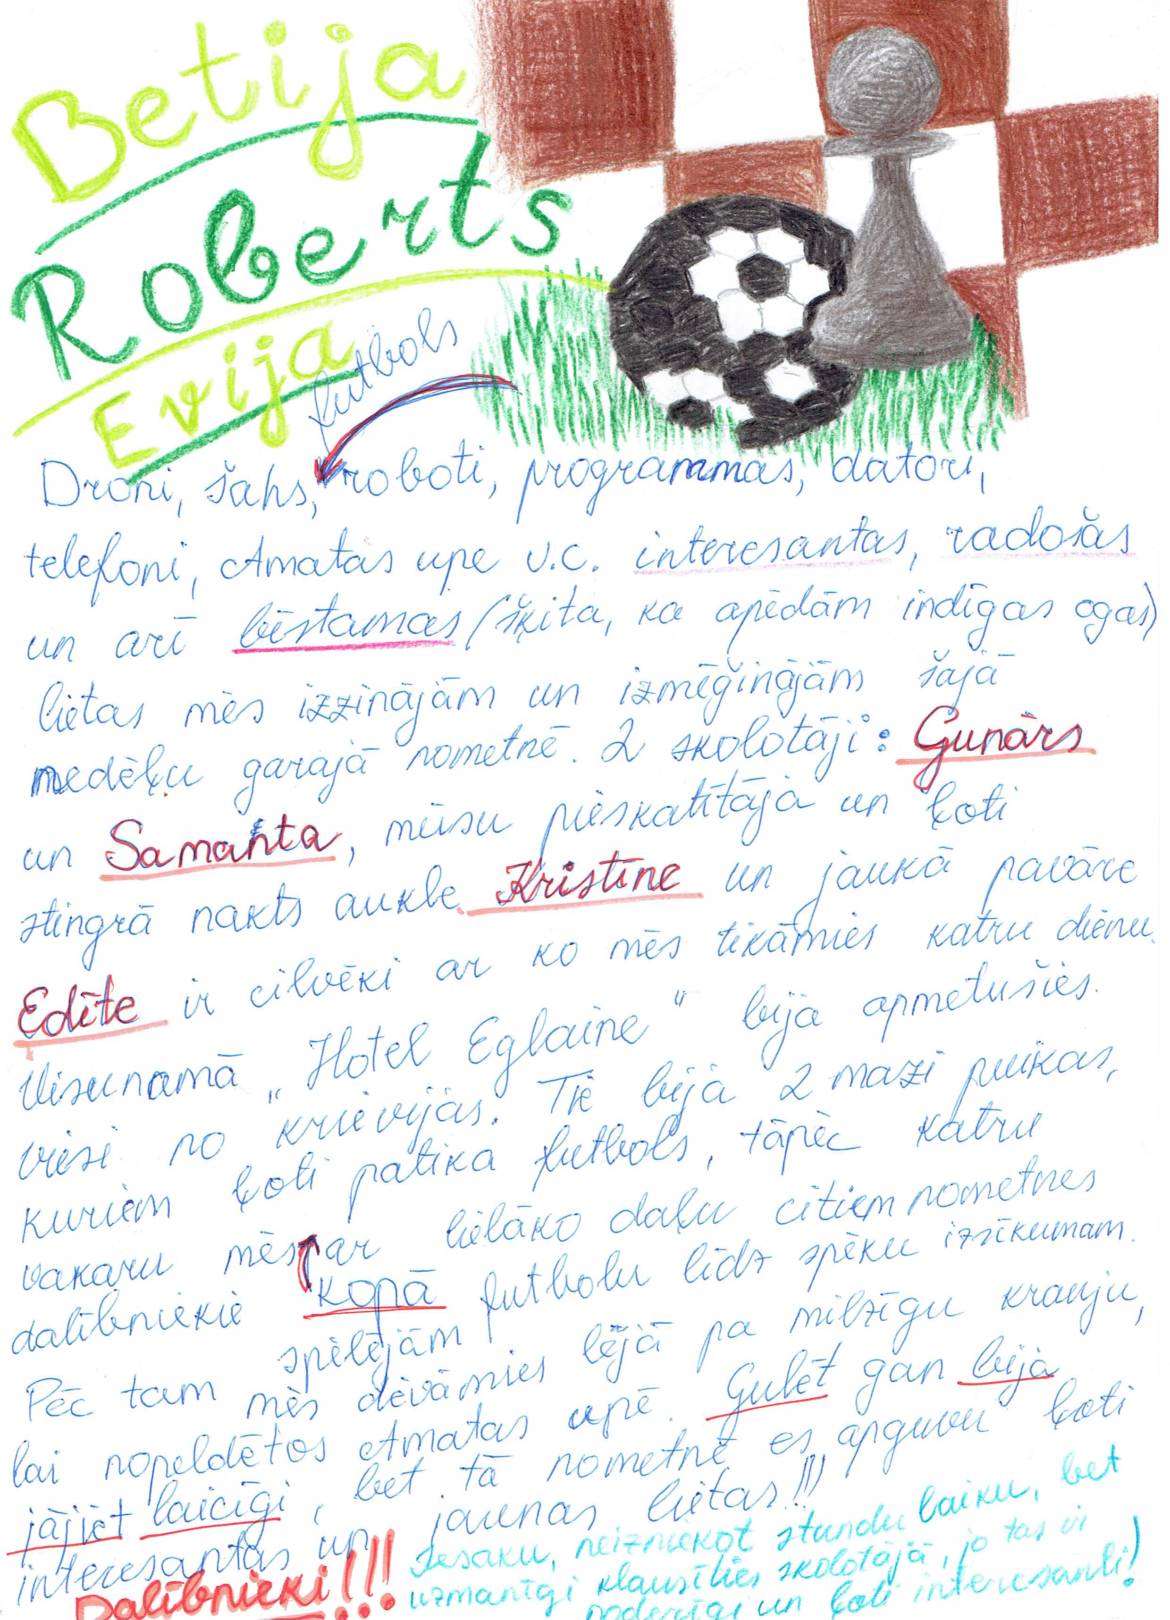 Betija
Roberts
Evija
futbols
Droni, šahs, roboti, programmas, datori,
telefoni, Amatas upe u.c. interesantas, radošas
un arī bīstamas (šķita, ka apēdām indīgas ogas)
lietas mēs izzinājām un izmēģinājām šajā
nedēļu garajā nometnē. 2 skolotāji: Gunārs
un Samanta, mūsu pieskatītāja un ļoti
stingrā nakts aukle Kristīne un jaukā pavāre
Edīte ir cilvēki ar ko mēs tikāmies katru dienu.
Viesunamā "Hotel Eglaine" bija apmetušies
viesi no krievijas. Tie bija 2 mazi puikas,
kuriem ļoti patika futbols, tāpēc katru
vakaru mēs ar lielāko daļu citiem nometnes
dalībniekie kopā futbolu līdz spēku izsīkumam.
spēlējām
Pēc tam mēs dēvāmies lējā pa milzīgu krauju,
lai nopeldētos Amatas upē. Gulēt gan bija
jājiet laicīgi, bet tā nometnē es apguvu ļoti
interesantas un jaunas lietas!!!
Dalībnieki!!! Iesaku, neizniekot stundu laiku, bet
uzmanīgi klausīties skolotājā, jo tas ir
noderīgi un ļoti interesanti!